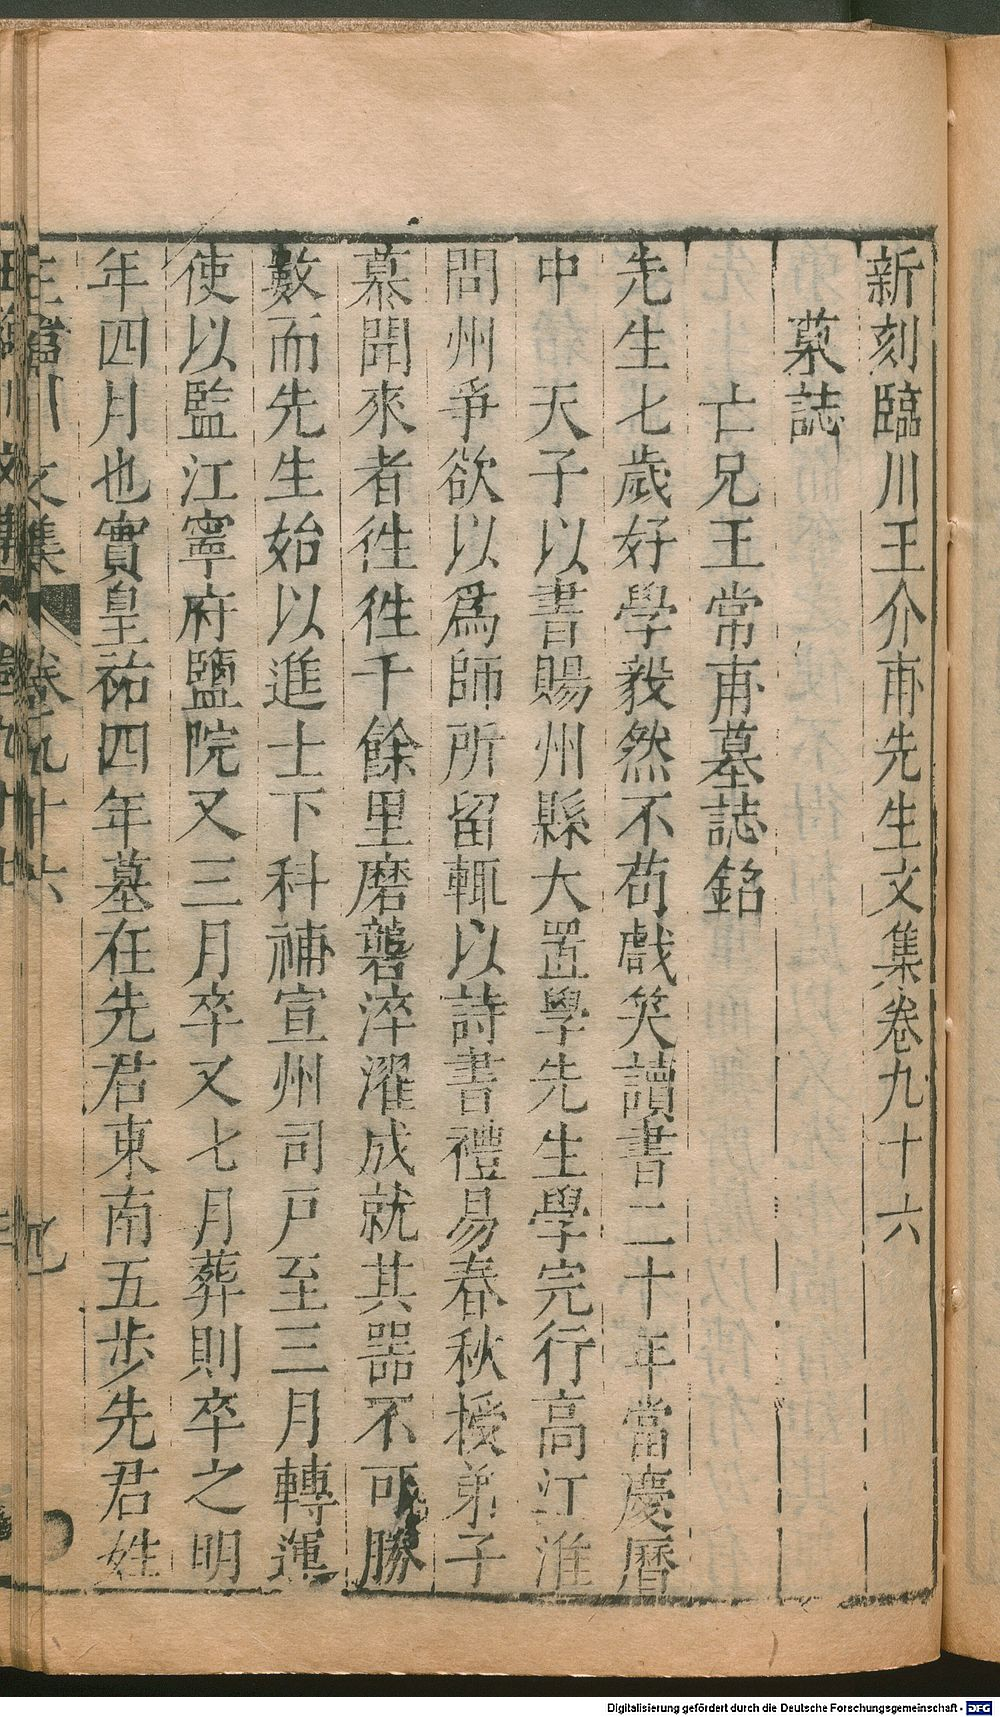 新刻臨川王介甫先生文集卷九十六
墓誌
亡兄王常甫墓誌銘
先生七歲好學毅然不苟戲笑讀書二十年當慶曆
中天子以書賜州縣大置學先生學完行高江淮
問州爭欲以爲師所留輒以詩書禮易春秋授弟子
慕聞來者徃徃千餘里磨礱淬濯成就其器不可勝
數而先生始以進士下科補宣州司戸至三月轉運
使以監江寧府鹽院又三月卒又七月葬則卒之明
年四月也實皇祐四年墓在先君東南五步先君姓
王臨川文集 卷九十六
Digitalisierung gefördert durch die Deutsche Forschungsgemeinschaft - DFG